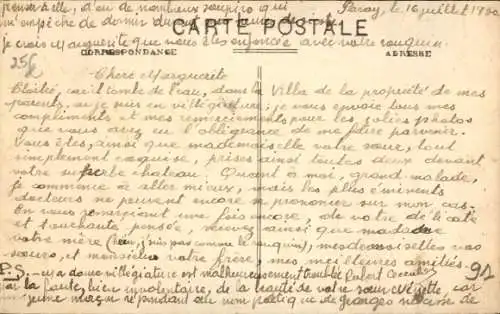 penser à elle, d'où de nombreux soupirs qui
Paray, le 16 juillet 1930
m'empêche de dormir
CARTE POSTALE
je crois Marguerite que vous êtes enfoncée avec votre rouquin.
CORRESPONDANCE
ADRESSE
25f
Chère Marguerite
Cloîtré, car il tombe de l'eau, dans la Villa de la propriété de mes
parents, où je suis en villégiature; je vous envoie tous mes
compliments et mes remerciements pour les jolies photos
que vous avez eu l'obligeance de me faire parvenir.
Vous êtes, ainsi que mademoiselle votre sœur, tout
simplement exquise, prises ainsi toutes deux devant
votre superbe chateau. Quant à moi, grand malade,
je commence à aller mieux, mais les plus éminents
docteurs ne peuvent encore se prononcer sur mon cas.
En vous remerciant une fois encore, de votre délicate
et touchante pensée, recevez ainsi que madame
votre mère (hein, j'suis pas comme le rouquin), mesdemoiselles vos
sœurs, et monsieur votre frère, mes meilleures amitiés.
P.S. - Ma bonne villégiature est malheureusement troublée Robert
par la faute, bien involontaire, de la beauté de votre sœur car
92
jeune maçon répondant au nom poétique de Georges de